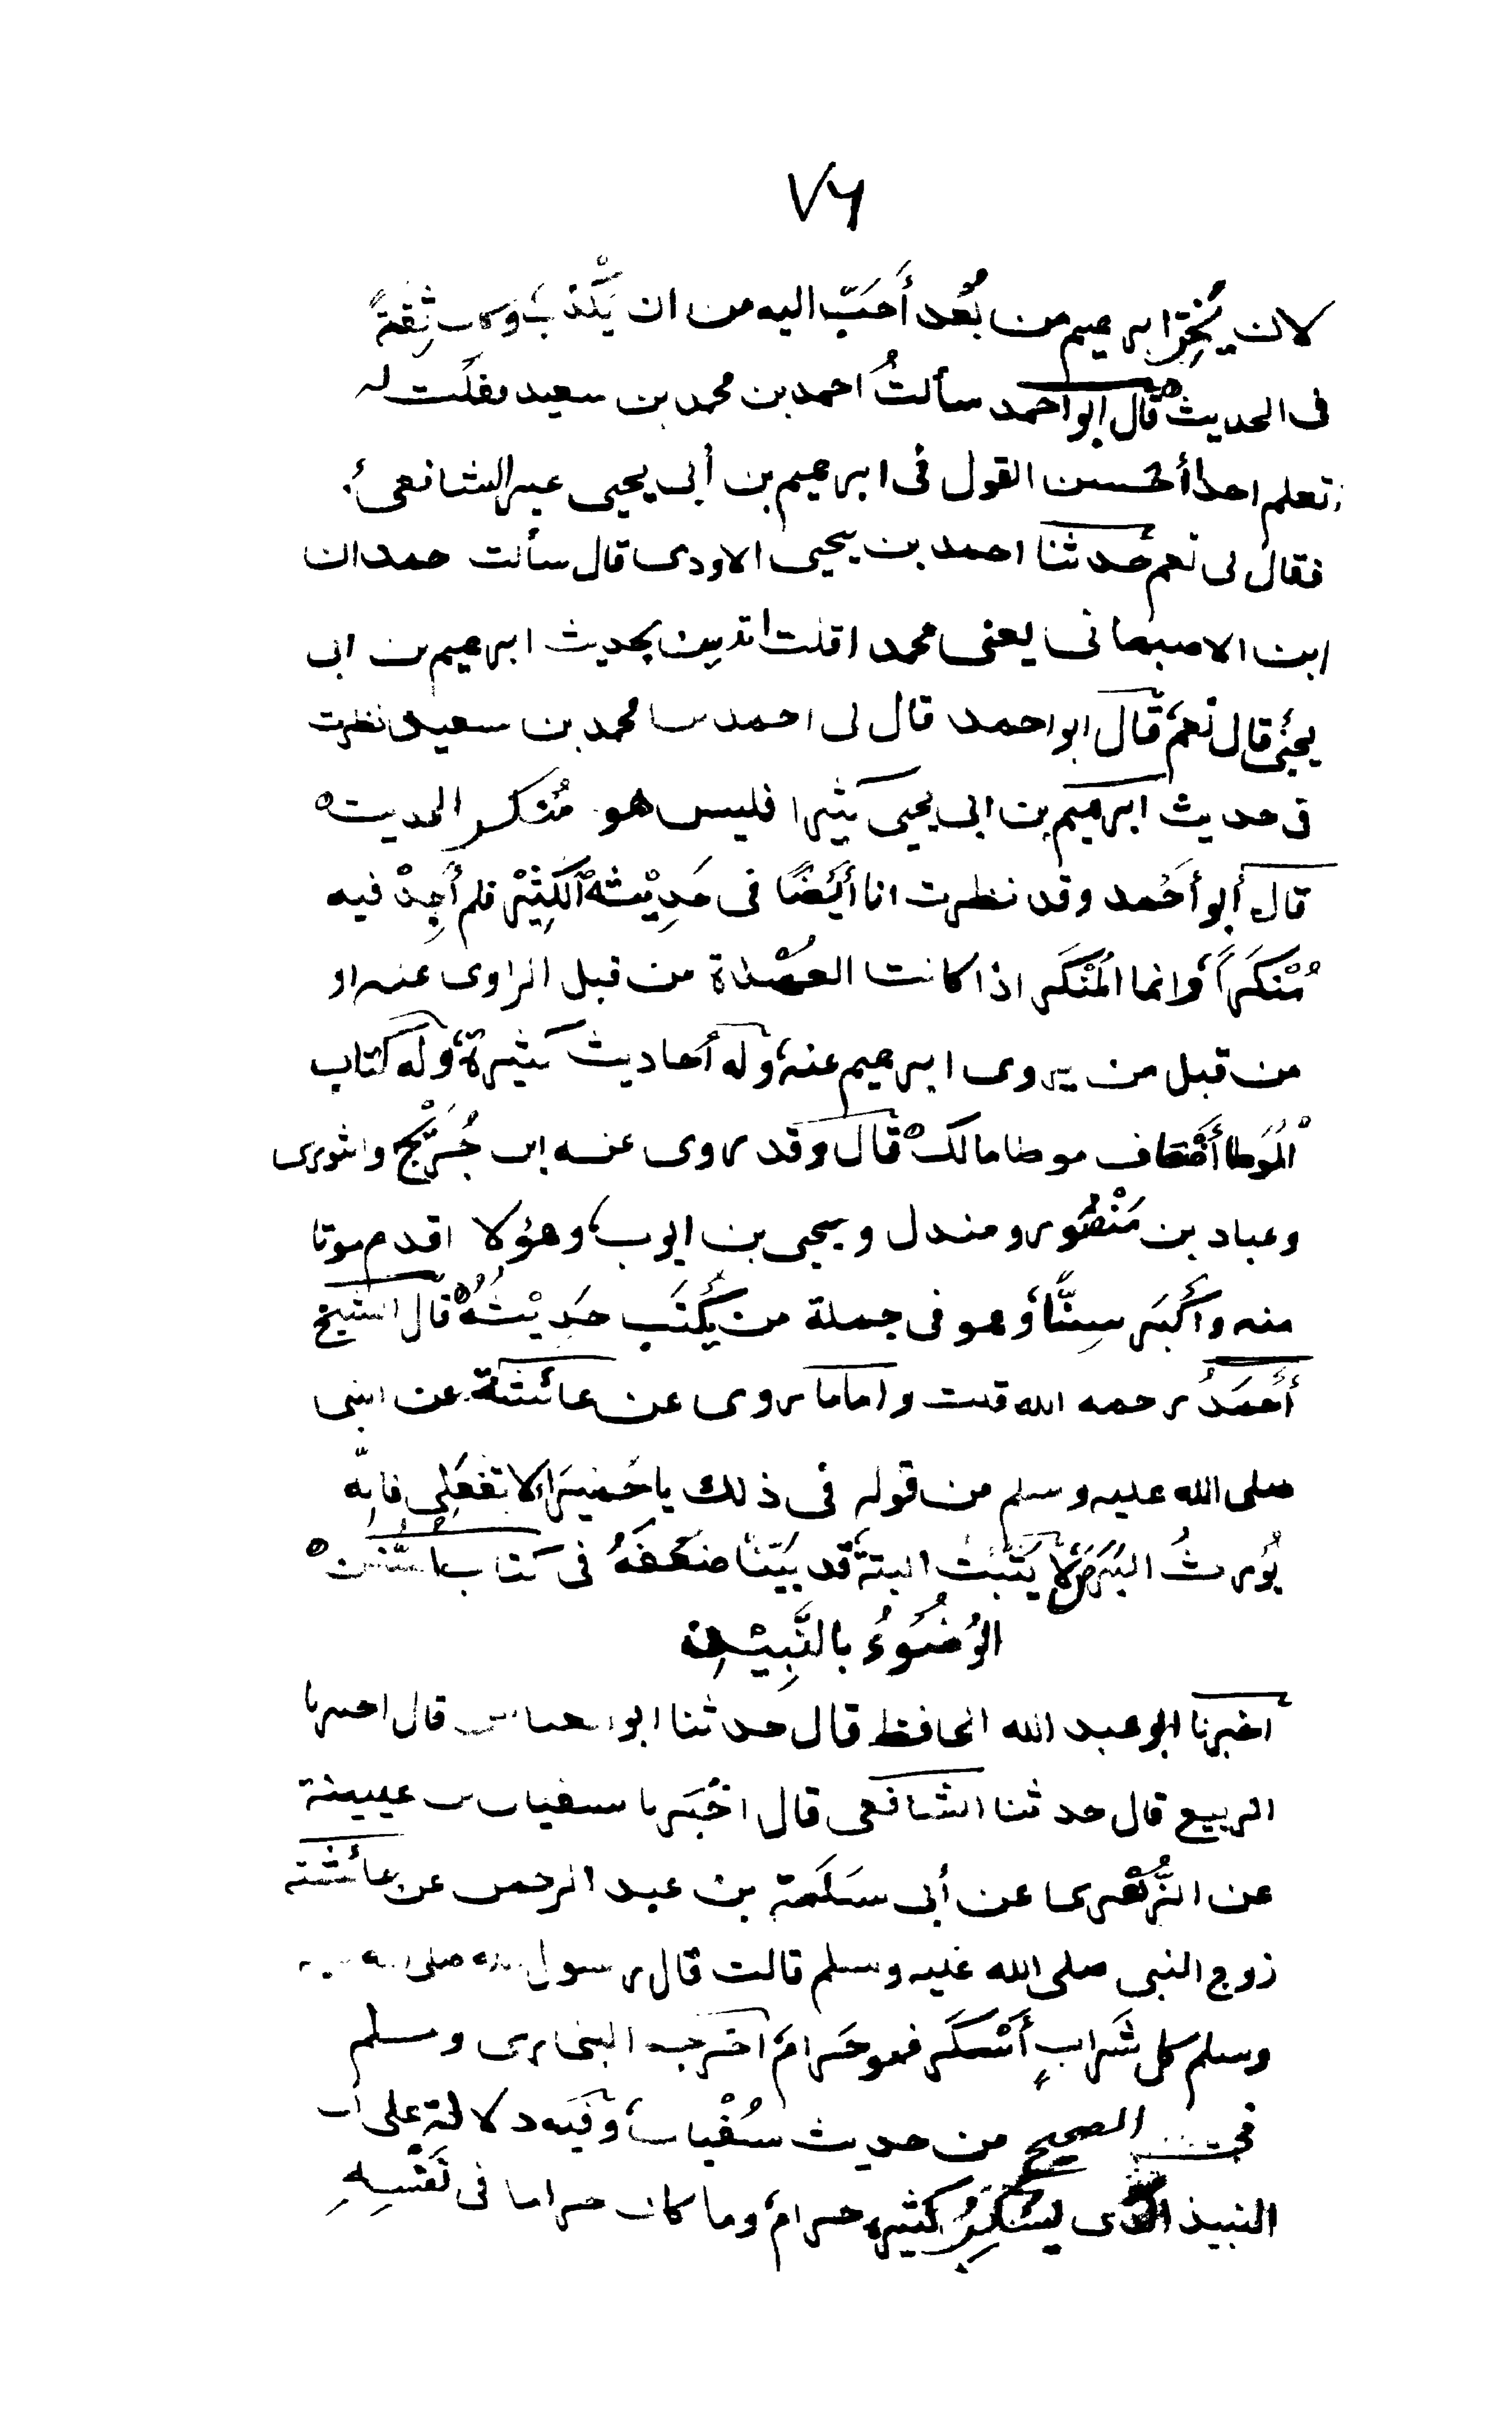 ٧٦
لان يَخِرّ ابرهيم من بُعد أَحَبّ اليه من ان يَكْذب وكان ثِقَةً
فى الحديث ه قال ابو احمد سألتُ احمد بن محمد بن سعيد فقلت له
تعلم احدا أحسن القول فى ابرهيم بن أبى يحيى غير الشافعى
فقال لى نعم حدثنا احمد بن يحيى الاودى قال سألت حمدان
ابن الاصبهانى يعنى محمدا قلت اتدين بحديث ابرهيم بن ابى
يحيى قال نعم قال ابو احمد قال لى احمد بن محمد بن سعيد نظرت
فى حديث ابرهيم بن ابى يحيى كثيرا فليس هو مُنكر الحديث ه
قال أبو أحمد وقد نظرت انا أَيْضًا فى حَدِيْثه الكَثِيْر فلم أَجِدْ فيه
مُنْكَراً وانما المُنْكَر اذا كانت العُهْدة من قبل الراوى عنه او
من قبل من يروى ابرهيم عنه وله أحاديث كثيرة وله كتاب
المُوَطا أضعاف موطا مالك ه قال وقد روى عنه ابن جُرَيْج والثورى
وعباد بن مَنْصُور ومندل ويحيى بن ايوب وهؤلا اقدم موتا
منه وأَكْبَر سِنًّا وهو فى جملة من يُكْتَب حَدِيْثُهُ ه قال الشيخ
أَحْمَدُ رحمه الله قلت واما ما روى عن عائشة عن النبى
صلى الله عليه وسلم من قوله فى ذلك يا حُميرَاء لا تفعَلِى فانِّه
يُورثُ البَرَصَ لا يَثْبُتُ البتة قد بيَّنَا ضَعْفَهُ فى كتاب السُّنَن ه
الوُضُوءُ بالنَّبِيْذ
اخبرنا ابو عبد الله الحافظ قال حدثنا ابو العباس قال اخبرنا
الربيع قال حدثنا الشافعى قال اخْبَرنا سفيان بن عيينة
عن الزُّهْرى عن أبى سَلَمَة بن عبد الرحمن عن عائشة
زوج النبى صلى الله عليه وسلم قالت قال رسول الله صلى الله عليه
وسلم كل شَرابٍ أَسْكَر فهو حَرام اخرجه البخارى ومسلم
فى الصحيح من حديث سُفْيان وفيه دلالة على ان
النبيذ الذى يُسْكِرُ كثيره حرام وما كان حراما فى نَفْسِهِ